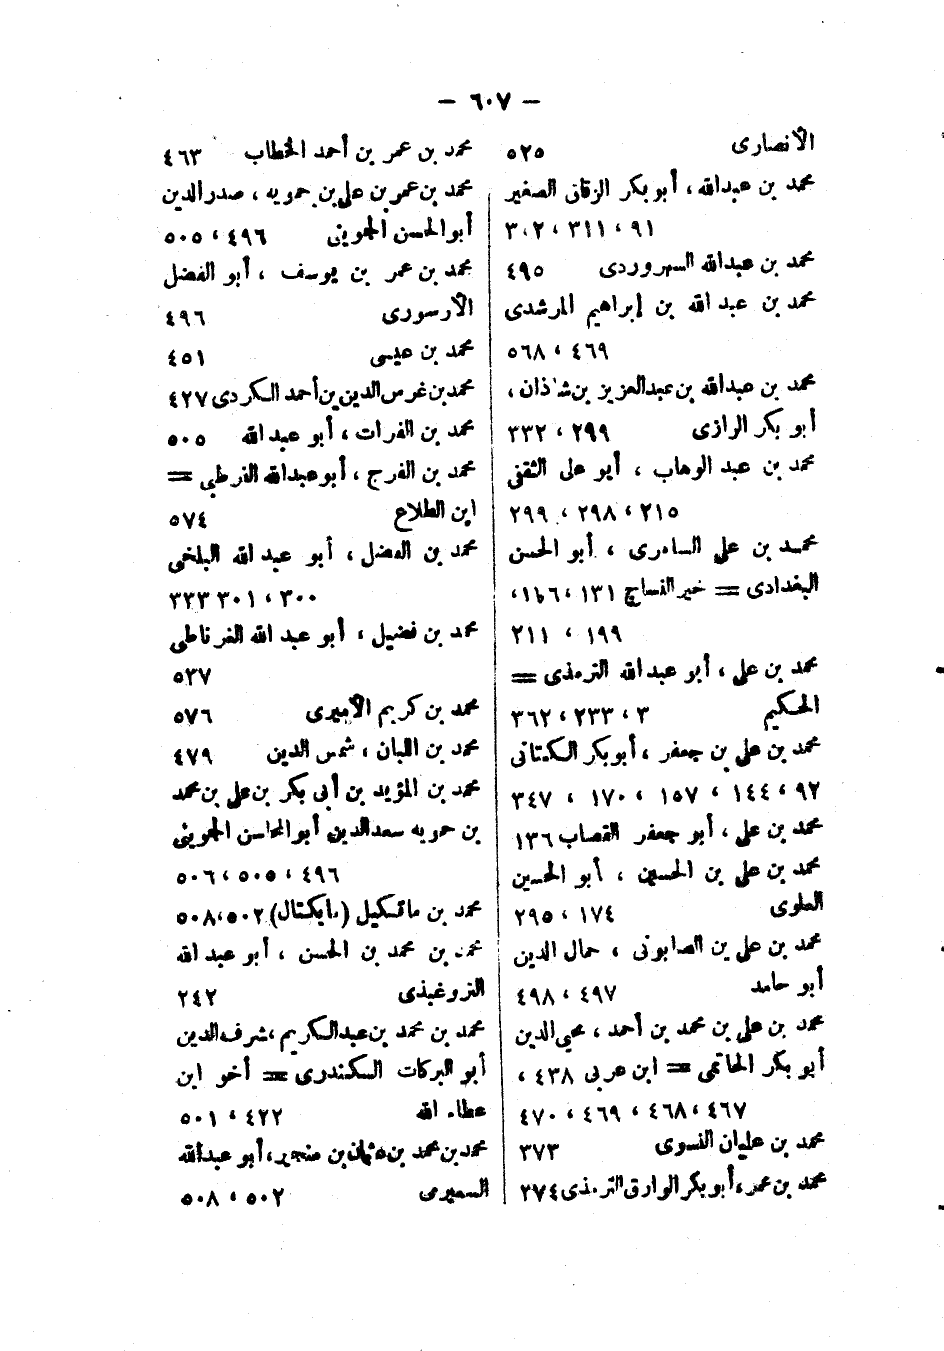 — ٦٠٧ —
الأنصارى ٥٢٥
محمد بن عبدالله ، أبو بكر الزقاق الصغير
٩١ ، ٣١١ ، ٣٠٢
محمد بن عبدالله السهروردى ٤٩٥
محمد بن عبد الله بن إبراهيم المرشدى
٤٦٩ ، ٥٦٨
محمد بن عبدالله بن عبدالعزيز بن شاذان ،
أبو بكر الرازى ٢٩٩ ، ٣٣٢
محمد بن عبد الوهاب ، أبو على الثقفى
٢١٥ ، ٢٩٨ ، ٢٩٩
محمد بن على السامرى ، أبو الحسن
البغدادى = خير النساج ١٣١ ،
١٩٩ ، ٢١١
محمد بن على ، أبو عبدالله الترمذى =
الحكيم ٣ ، ٢٣٣ ، ٣٦٢
محمد بن على بن جعفر ، أبو بكر الكتانى
٩٢ ، ١٤٤ ، ١٥٧ ، ١٧٠ ، ٣٤٧
محمد بن على ، أبو جعفر القصاب ١٣٦
محمد بن على بن الحسين ، أبو الحسين
العلوى ١٧٤ ، ٢٩٥
محمد بن على بن الصابونى ، جمال الدين
أبو حامد ٤٩٧ ، ٤٩٨
محمد بن على بن محمد بن أحمد ، محيى الدين
أبو بكر الحاتمى = ابن عربى ٤٣٨ ،
٤٦٧ ، ٤٦٨ ، ٤٦٩ ، ٤٧٠
محمد بن عليان النسوى ٣٧٣
محمد بن عمر ، أبو بكر الوارق الترمذى ٣٧٤
محمد بن عمر بن أحمد الخطاب ٤٦٣
محمد بن عمر بن على بن حمويه ، صدر الدين
أبو الحسن الجوينى ٤٩٦ ، ٥٠٥
محمد بن عمر بن يوسف ، أبو الفضل
الأرسورى ٤٩٦
محمد بن عيسى ٤٥١
محمد بن غرس الدين بن أحمد الكردى ٤٢٧
محمد بن الفرات ، أبو عبد الله ٥٠٥
محمد بن الفرج ، أبو عبدالله القرطبى =
ابن الطلاع ٥٧٤
محمد بن الفضل ، أبو عبد الله البلخى
٣٠٠ ، ٣٠١ ٣٢٣
محمد بن فضيل ، أبو عبد الله الغرناطى
٥٣٧
محمد بن كريم الأميرى ٥٧٦
محمد بن اللبان ، شمس الدين ٤٧٩
محمد بن المؤيد بن أبى بكر بن على بن محمد
بن حمويه سعدالدين أبو المحاسن الجوينى
٤٩٦ ، ٥٠٥ ، ٥٠٦
محمد بن ماتكيل (مايكتال) ٥٠٢ ، ٥٠٨
محمد بن محمد بن الحسن ، أبو عبد الله
التروغبذى ٢٤٢
محمد بن محمد بن عبد الكريم ، شرف الدين
أبو البركات السكندرى = أخو ابن
عطاء الله ٤٢٢ ، ٥٠١
محمد بن محمد بن عثمان بن منجير ، أبو عبدالله
السميرمى ٥٠٢ ، ٥٠٨